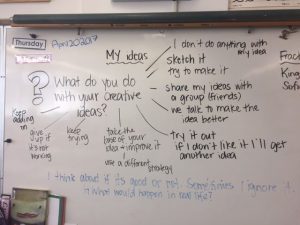 Thursday
April 20 2017
MY ideas
? What do you do
with your creative
ideas?
I don't do anything with
my idea
sketch it
try to make it
share my ideas with
a group (friends)
we talk to make the
idea better
try it out
if I don't like it I'll get
another idea
Keep
adding
on
give
up if
it's not
working
keep
trying
take the
base of your
idea + improve it
use a different
strategy
I think about if its good or not. Sometimes I ignore it.
What would happen in real life?
Frac
King
Sof